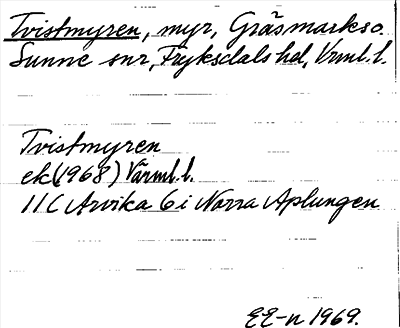 Tvistmyren, myr, Gräsmarks o
Sunne snr, Fryksdals hd, Vrml. l.
Tvistmyren
ek (1968) Värml. l.
11C Arvika 6 i Norra Aplungen
EE-n 1969.